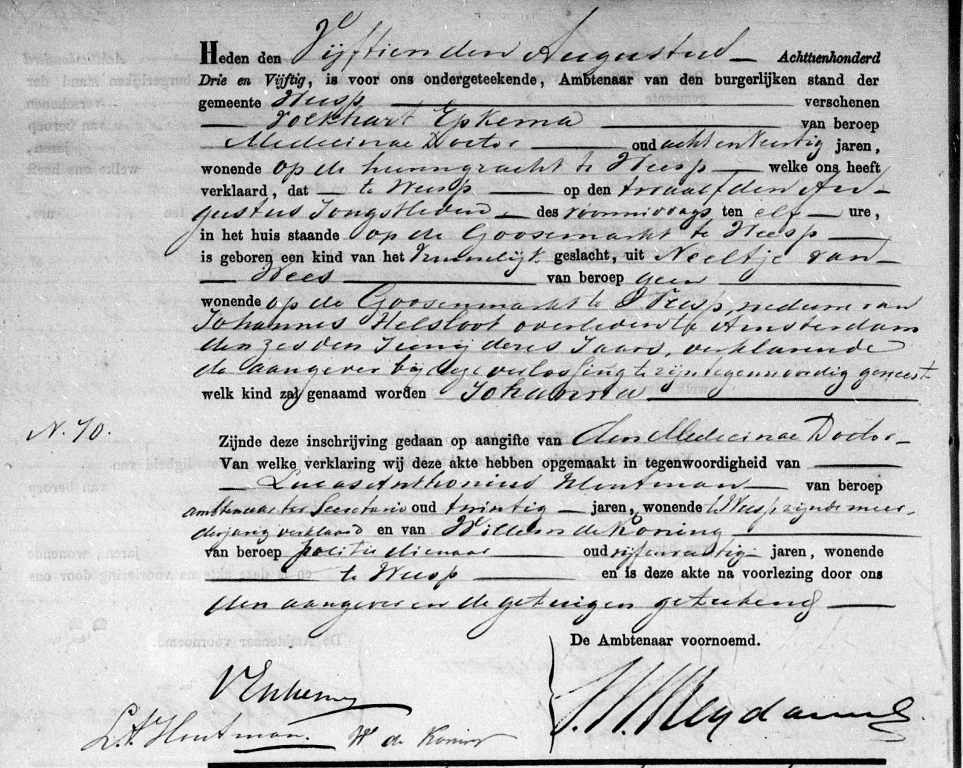 Heden den Vijftienden Augustus Achttienhonderd
Drie en Vijftig, is voor ons ondergeteekende, Ambtenaar van den burgerlijken stand der
gemeente Weesp verschenen
Volkhart Epkema van beroep
Medicinae Doctor oud acht en jaren,
wonende op de heerengracht te Weesp welke ons heeft
verklaard, dat te Weesp op den twaalfden Au-
gustus Jongstleden des voormiddags ten elf ure,
in het huis staande op de Goosemarkt te Weesp
is geboren een kind van het Vrouwelijk geslacht, uit Neeltje van
Wees van beroep geen
wonende op de Goosenmarkt te Weesp, weduwe van
Johannes Helsloot overleden te Amsterdam
den zesden Junij dezes Jaars, verklarende
de aangever bij deze verlossing te zijn tegenwoordig geweest
welk kind zal genaamd worden Johanna
N. 70.
Zijnde deze inschrijving gedaan op aangifte van den Medicinae Doctor
Van welke verklaring wij deze akte hebben opgemaakt in tegenwoordigheid van
Lucas Anthonius Houtman van beroep
ambtenaar ter Secretarie oud twintig jaren, wonende te Weesp zijnde meer-
derjarig verklaard en van Willem de Koning
van beroep politie dienaar oud jaren, wonende
te Weesp en is deze akte na voorlezing door ons
den aangever en de getuigen geteekend
De Ambtenaar voornoemd.
VEpkema
L.A. Houtman. W de Koning